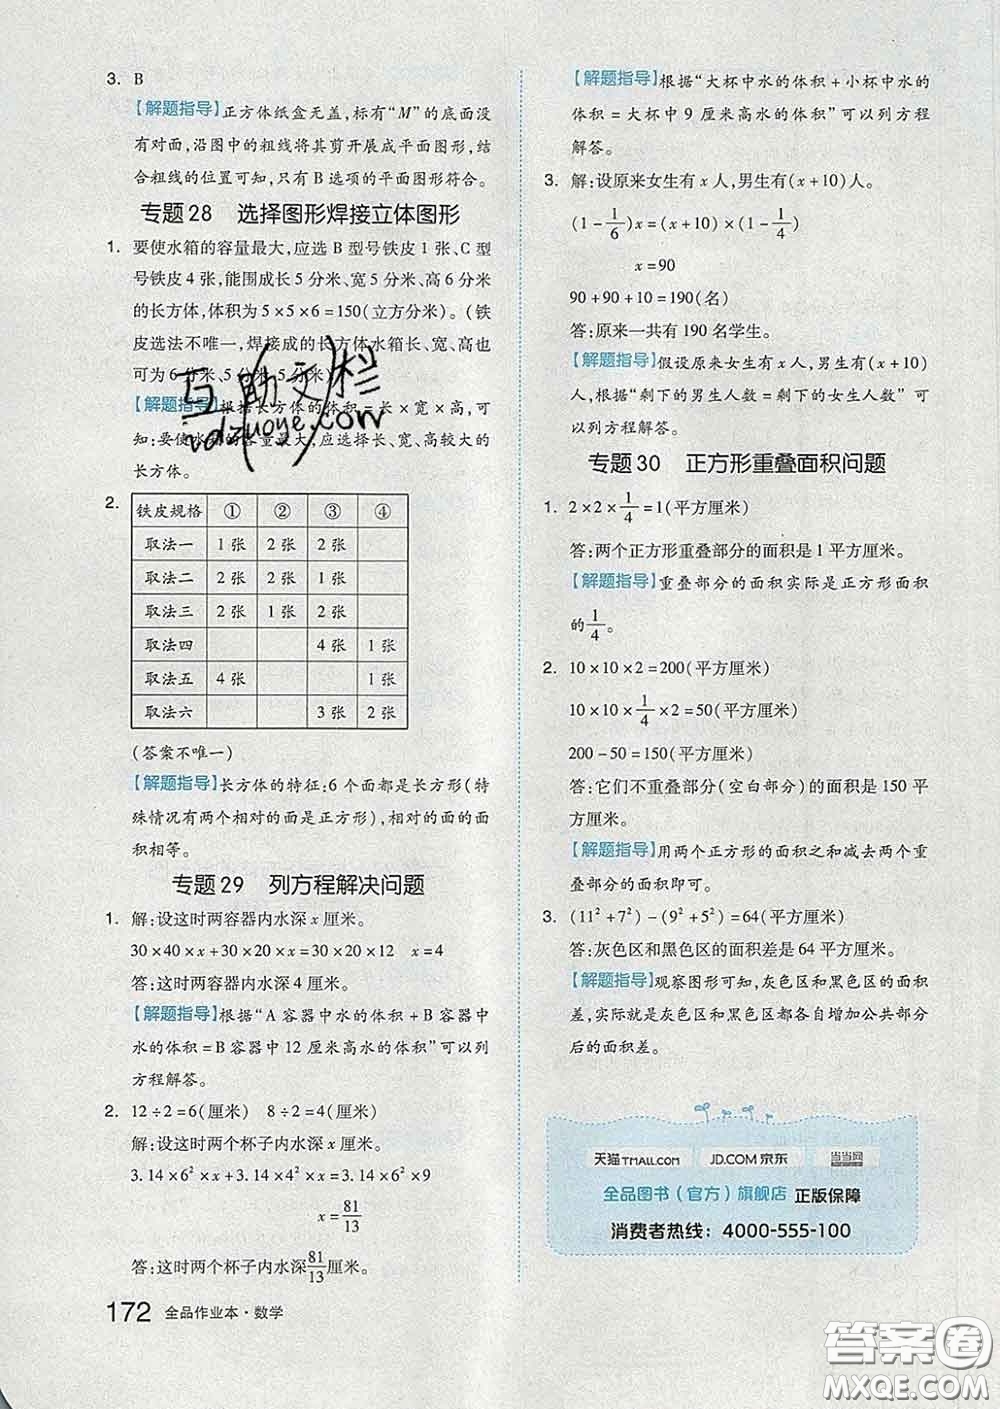 3. B
【解题指导】正方体纸盒无盖,标有“M”的底面没
有对面,沿图中的粗线将其剪开展成平面图形,结
合粗线的位置可知,只有 B 选项的平面图形符合。
专题28 选择图形焊接立体图形
1. 要使水箱的容量最大,应选 B 型号铁皮 1 张、C 型
号铁皮 4 张,能围成长 5 分米、宽 5 分米、高 6 分米
的长方体,体积为 5×5×6=150(立方分米)。(铁
皮选法不唯一,焊接成的长方体水箱长、宽、高也
可为 6 分米、5 分米、5 分米)
【解题指导】根据长方体的体积=长×宽×高,可
知:要使水箱的容量最大,应选择长、宽、高最大的
长方体。
2.
铁皮规格 ① ② ③ ④
取法一 1 张 2 张 2 张
取法二 2 张 2 张 1 张
取法三 2 张 1 张 2 张
取法四 4 张 1 张
取法五 4 张 1 张
取法六 3 张 2 张
(答案不唯一)
【解题指导】长方体的特征:6 个面都是长方形(特
殊情况有两个相对的面是正方形),相对的面的面
积相等。
专题29 列方程解决问题
1. 解:设这时两容器内水深 x 厘米。
30×40×x+30×20×x=30×20×12 x=4
答:这时两容器内水深 4 厘米。
【解题指导】根据“A 容器中水的体积+B 容器中
水的体积=B 容器中 12 厘米高水的体积”可以列
方程解答。
2. 12÷2=6(厘米) 8÷2=4(厘米)
解:设这时两个杯子内水深 x 厘米。
3.14×6²×x+3.14×4²×x=3.14×6²×9
x=81/13
答:这时两个杯子内水深81/13厘米。
172 全品作业本·数学
【解题指导】根据“大杯中水的体积+小杯中水的
体积=大杯中 9 厘米高水的体积”可以列方程
解答。
3. 解:设原来女生有 x 人,男生有(x+10)人。
(1-1/6)x=(x+10)×(1-1/4)
x=90
90+90+10=190(名)
答:原来一共有 190 名学生。
【解题指导】假设原来女生有 x 人,男生有(x+10)
人,根据“剩下的男生人数=剩下的女生人数”可
以列方程解答。
专题30 正方形重叠面积问题
1. 2×2×1/4=1(平方厘米)
答:两个正方形重叠部分的面积是 1 平方厘米。
【解题指导】重叠部分的面积实际是正方形面积
的1/4。
2. 10×10×2=200(平方厘米)
10×10×1/4×2=50(平方厘米)
200-50=150(平方厘米)
答:它们不重叠部分(空白部分)的面积是 150 平
方厘米。
【解题指导】用两个正方形的面积之和减去两个重
叠部分的面积即可。
3. (11²+7²)-(9²+5²)=64(平方厘米)
答:灰色区和黑色区的面积差是 64 平方厘米。
【解题指导】观察图形可知,灰色区和黑色区的面积
差,实际就是灰色区和黑色区都各自增加公共部分
后的面积差。
天猫TMALL.COM JD.COM 京东 当当网
全品图书(官方)旗舰店 正版保障
消费者热线:4000-555-100
互助文栏
答案圈
MXQE.COM